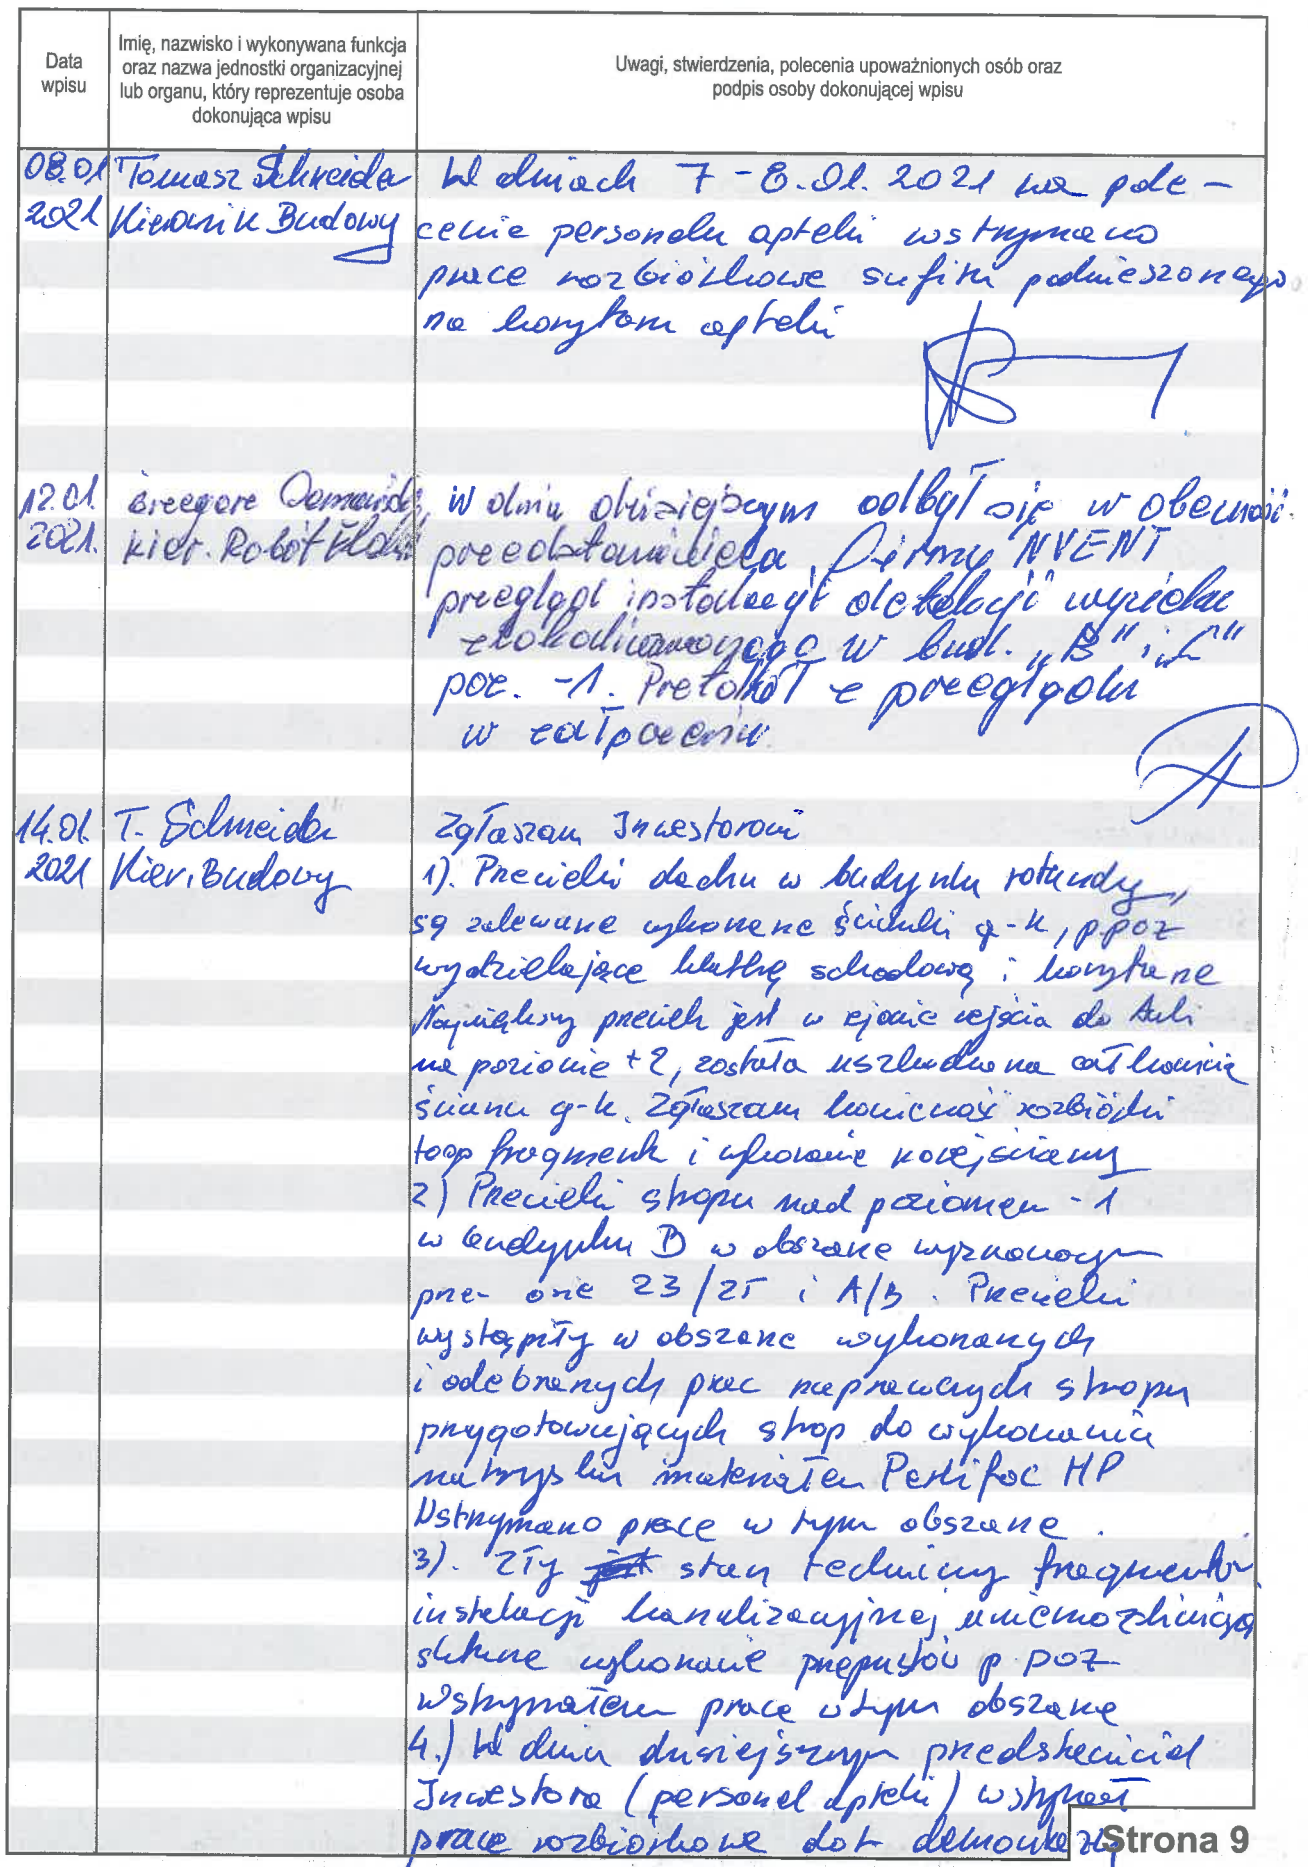 Data
wpisu
Imię, nazwisko i wykonywana funkcja
oraz nazwa jednostki organizacyjnej
lub organu, który reprezentuje osoba
dokonująca wpisu
Uwagi, stwierdzenia, polecenia upoważnionych osób oraz
podpis osoby dokonującej wpisu
08.01
2021
Tomasz Schneider
Kierownik Budowy
W dniach 7-8.01.2021 na pole-
cenie personelu apteki wstrzymano
prace rozbiórkowe sufitu podwieszonego
na korytarzu apteki
12.01.
2021.
Grzegorz
kier. Robót
W dniu dzisiejszym odbył się w obecność.
przedstawiciela firmy NVENT
przegląd instalacji detekcji wycieku
w bud. „B" i „C"
poz. -1. Protokół z przeglądu
w załączeniu
14.01.
2021
T. Schneider
Kier. Budowy
Zgłaszam Inwestorowi
1). Przecieki dachu w budynku rotundy,,
są zalewane wykonane ścianki g-k, p.poż
wydzielające klatkę schodową i korytarze
Największy przeciek jest w rejonie wejścia do Auli
na poziomie +2, została uszkodzona całkowicie
ściana g-k. Zgłaszam konieczność rozbiórki
tego fragmentu i wykonanie nowej ściany
2) Przecieki stropu nad poziomem -1
w budynku B w obszarze wyznaczonym
prze- osie 23/25 i A/B. Przecieki
wystąpiły w obszarze wykonanych
i odebranych prac naprawczych stropu
przygotowujących strop do wykonania
natrysku materiałem Perlifoc HP
Wstrzymano prace w tym obszarze.
3). Zły stan techniczny fragmentów
instalacji kanalizacyjnej uniemożliwiają
skuteczne wykonanie przepustów p.poż
wstrzymałem prace w tym obszarze
4.) W dniu dzisiejszym przedstawiciel
Inwestora (personel apteki) wstrzymał
prace rozbiórkowe dot demontażu
Strona 9